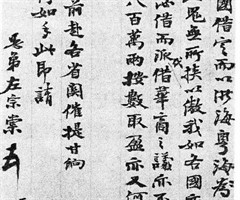 國借定而以浙海粵海
鬼無所挾以傲我如各國
借而派借華商之議亦不
八百萬兩按數取盈亦又何
前赴各省關催提甘餉
何如手此即請
愚弟左宗棠